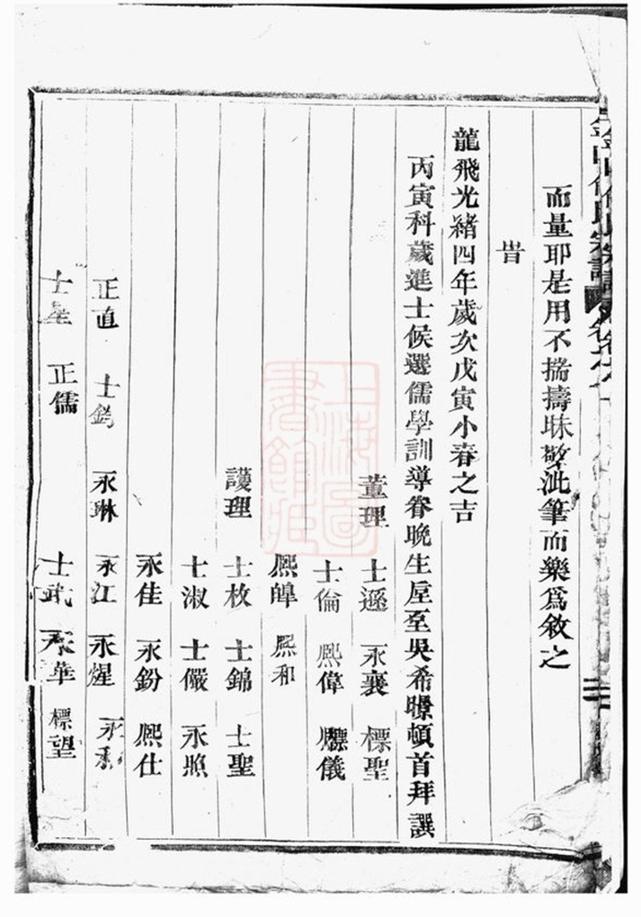 而量耶是用不揣擣昧敬泚筆而樂爲敘之
旹
龍飛光緒四年歲次戊寅小春之吉
丙寅科歲進士候選儒學訓導眷晚生屋至吳希曒頓首拜譔
董理 士遜 永襄 標聖
士倫 熙偉 儀
熙皥 熙和
護理 士枚 士錦 士聖
士淑 士儼 永照
永佳 永鈖 熙仕
正直 士 永琳 永江 永煋 永
士 正儒 士武 永華 標望
氏宗譜
上海圖書館藏